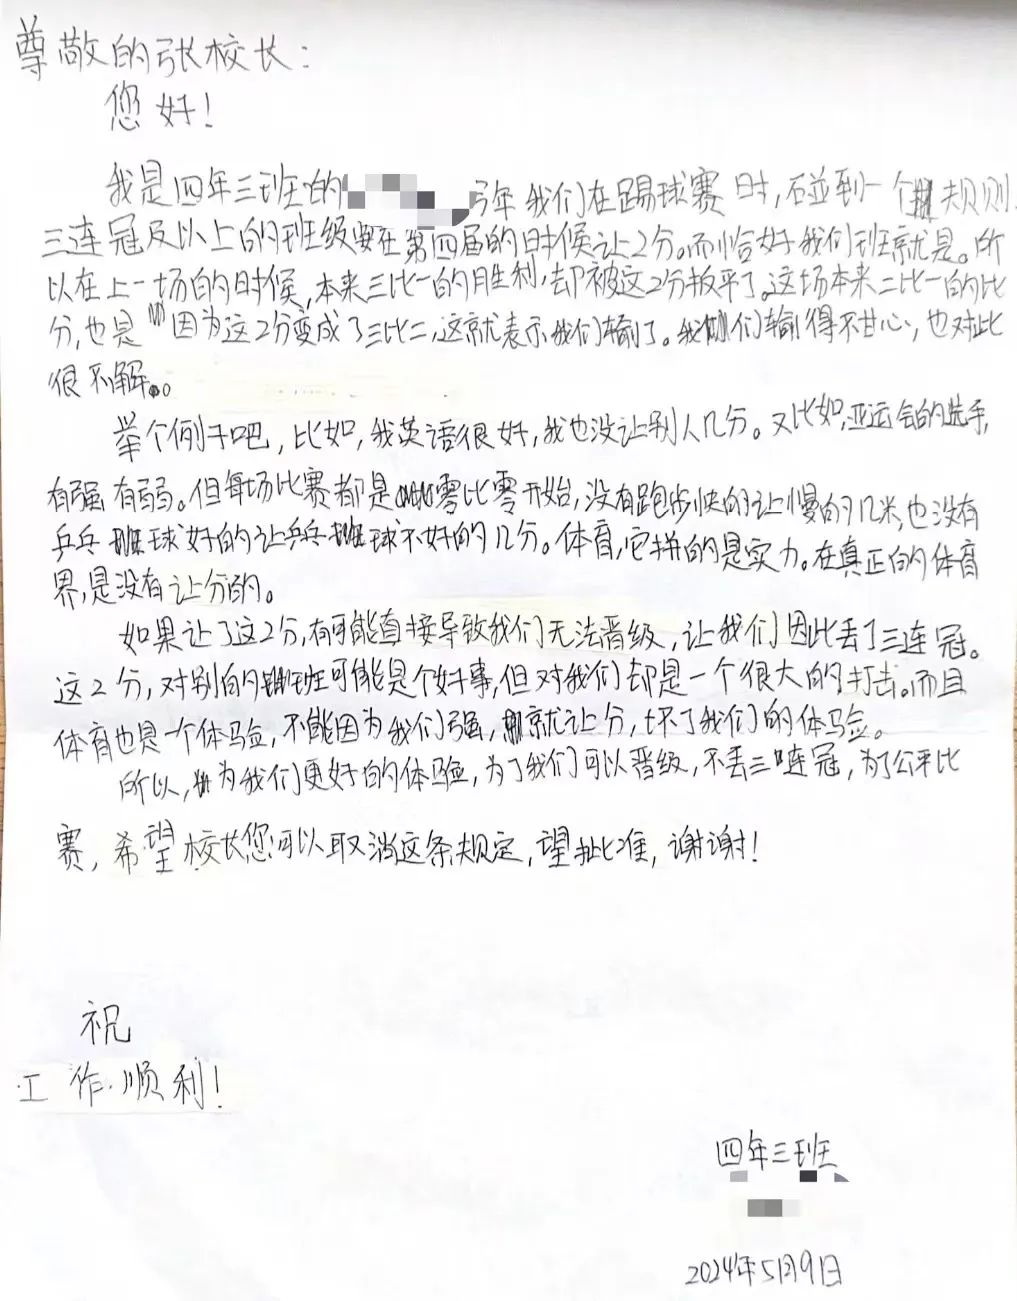 尊敬的张校长：
您好！
我是四年三班的 今年我们在踢球赛时，碰到一个规则，
三连冠及以上的班级要在第四届的时候让2分。而恰好我们班就是。所
以在上一场的时候，本来三比一的胜利，却被这2分扳平了。这场本来二比一的比
分，也是因为这2分变成了三比二，这就表示我们输了。我们输得不甘心，也对此
很不解。
举个例子吧，比如，我英语很好，我也没让别人几分。又比如，亚运会的选手，
有强有弱。但每场比赛都是零比零开始，没有跑步快的让慢的几米，也没有
乒乓球好的让乒乓球不好的几分。体育，它拼的是实力。在真正的体育
界，是没有让分的。
如果让了这2分，有可能直接导致我们无法晋级，让我们因此丢了三连冠。
这2分，对别的班可能是个好事，但对我们却是一个很大的打击。而且
体育也是一个体验，不能因为我们强，就让分，坏了我们的体验。
所以，为我们更好的体验，为了我们可以晋级，不丢三连冠，为了公平比
赛，希望校长您可以取消这条规定，望批准，谢谢！
祝
工作顺利！
四年三班
2024年5月9日